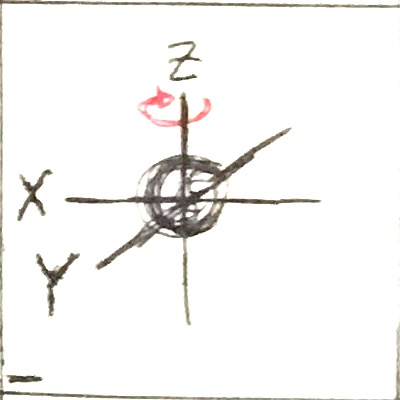 Z
X
Y